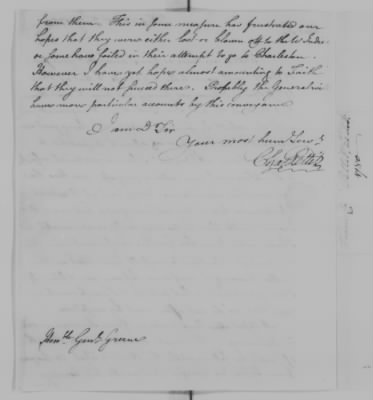 from them. This in some measure has frustrated our
hopes that they were either lost or blown off to the W Indies
or some have foiled in their attempt to go to Charleston.
However I have yet hopes almost amounting to Faith
that they will not succeed there. Probably the General will
have more particular accounts by this conveyance
I am D Sir
Your most hum Serv.t
Cha Pettit
Hon.ble Gen.l Greene